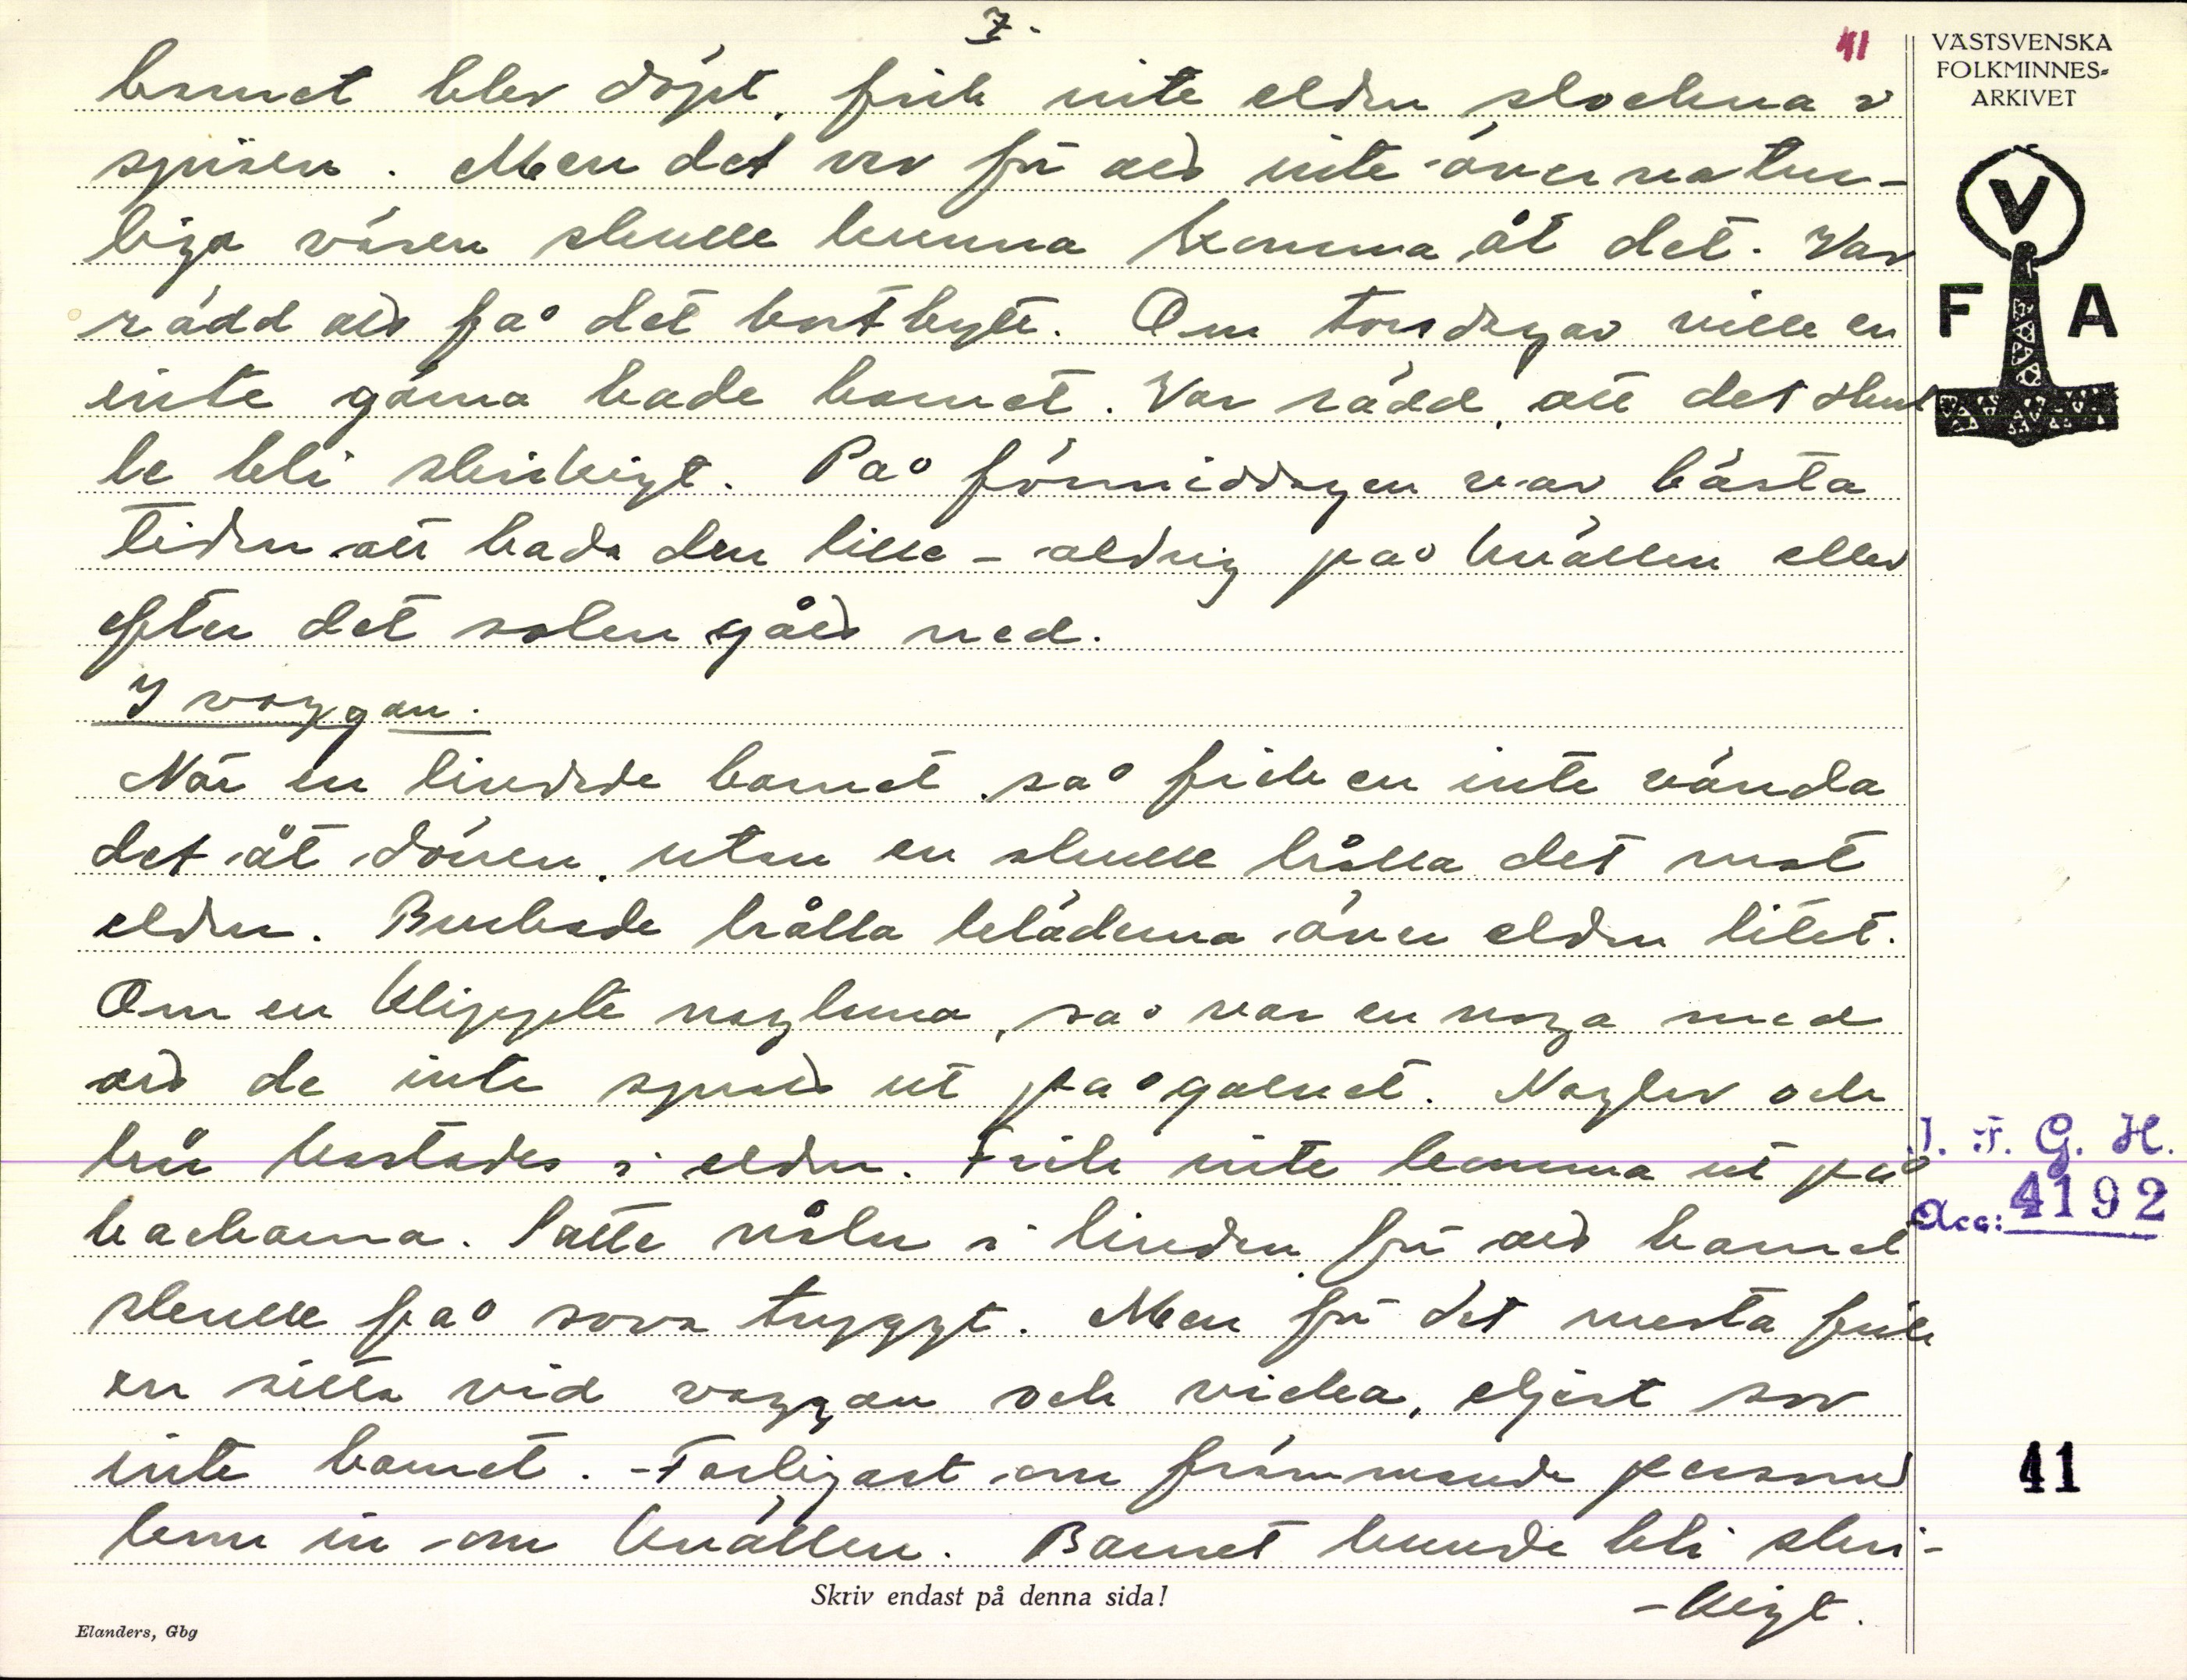 7.
41
VÄSTSVENSKA
FOLKMINNES-
ARKIVET
V
F A
barnet blev döpt, fick inte elden slockna i
spisen. Men det var för att inte övernatur-
liga väsen skulle kunna komma åt det. Var
rädd att få det bortbytt. Om torsdagar ville en
inte gärna bada barnet. Var rädd, att det skul
le bli skirkigt. På förmiddagen var bästa
tiden att bada den lille - aldrig på kvällen eller
efter det solen gått ned.
I vaggan.
När en lindade barnet, så fick en inte vända
det åt dörren, utan en skulle hålla det mot
elden. Brukade hålla kläderna över elden litet.
Om en klippte naglarna, så var en noga med
att de inte spreds ut på golvet. Naglar och
hår kastades i elden. Fick inte komma ut på
backarna. Satte nålar i lindan för att barnet
skulle få sova tryggt. Men för det mesta fick
en sitta vid vaggan och vicka, eljest sov
inte barnet. - Farligast om främmande personer
kom in om kvällen. Barnet kunde bli skri-
-kigt.
I. F. G. H.
Acc: 4192
41
Skriv endast på denna sida!
Elanders, Gbg